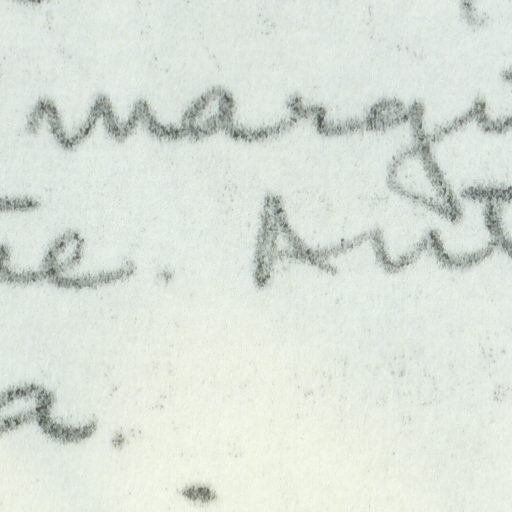 margi
te. Aut
a.